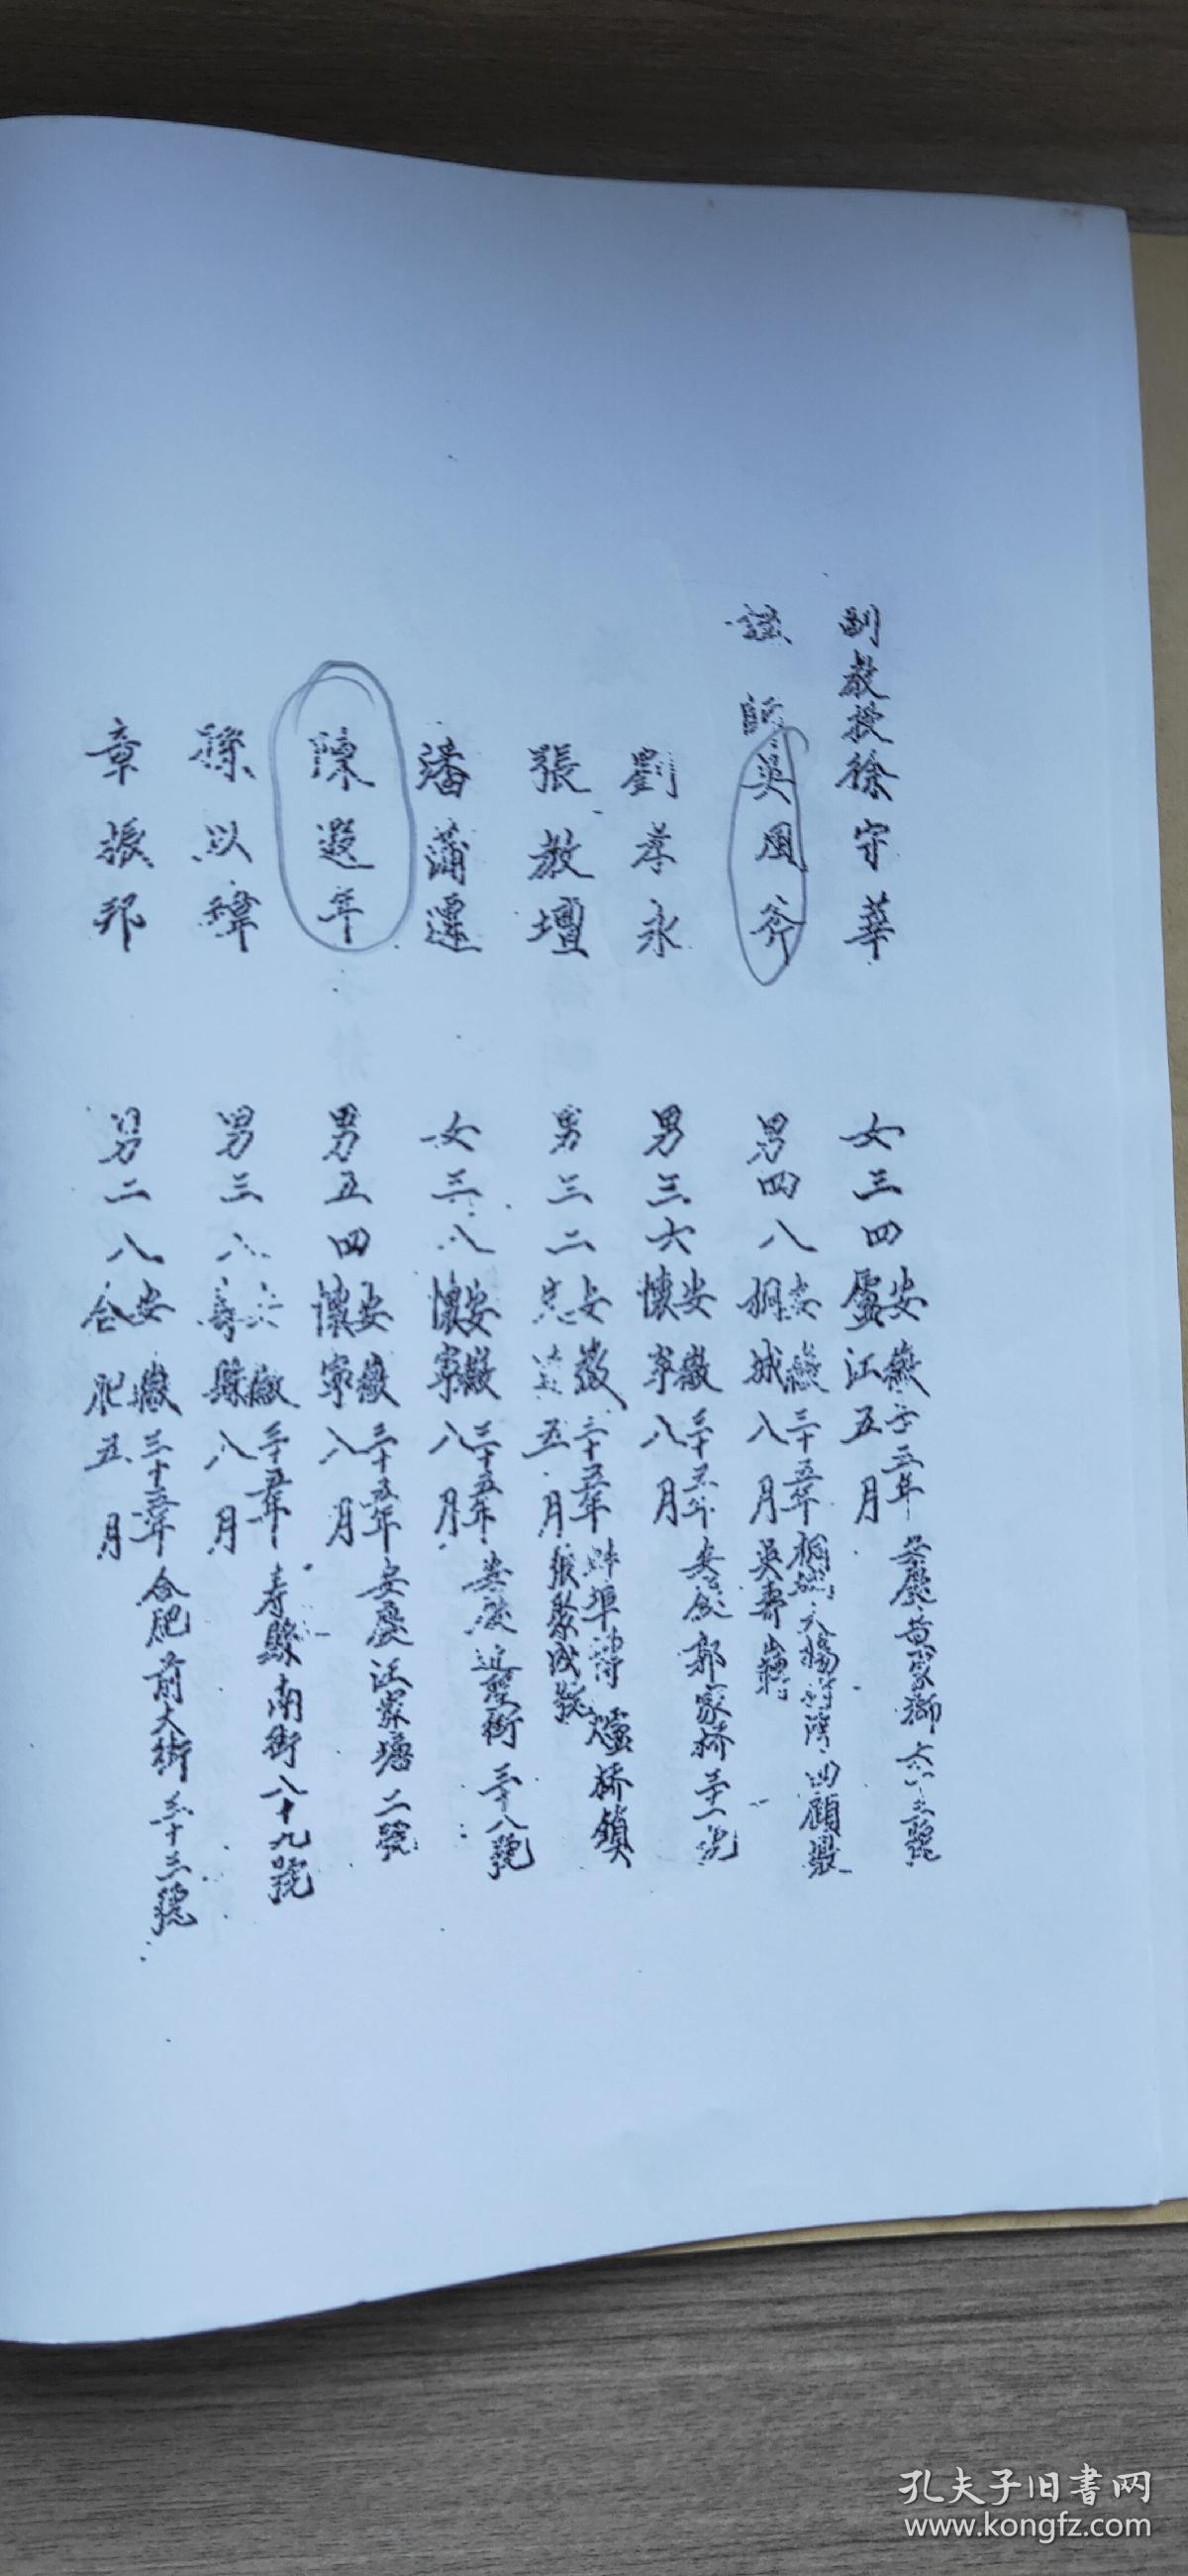 副教授徐守華 女 三四 安徽廬江 三年五月 安慶黃家獅六十三號
講師 吳風斧 男 四八 安徽桐城 三十五年八月 桐城 吳壽
劉孝永 男 三六 安徽懷寧 三十五年八月 安慶郭家橋三十一號
張教壇 男 三二 安徽 三十五年五月 蚌埠 爐橋鎮 張聚成號
潘蒲遷 女 三八 安徽懷寧 三十五年八月 安慶近聖街三十八號
陳遐年 男 五四 安徽懷寧 三十五年八月 安慶汪家塘二號
孫以瑋 男 三八 安徽壽縣 三十五年八月 寿縣南街八十九號
章振邦 男 二八 安徽合肥 三十五年五月 合肥前大街三十三號
孔夫子旧書网
www.kongfz.com